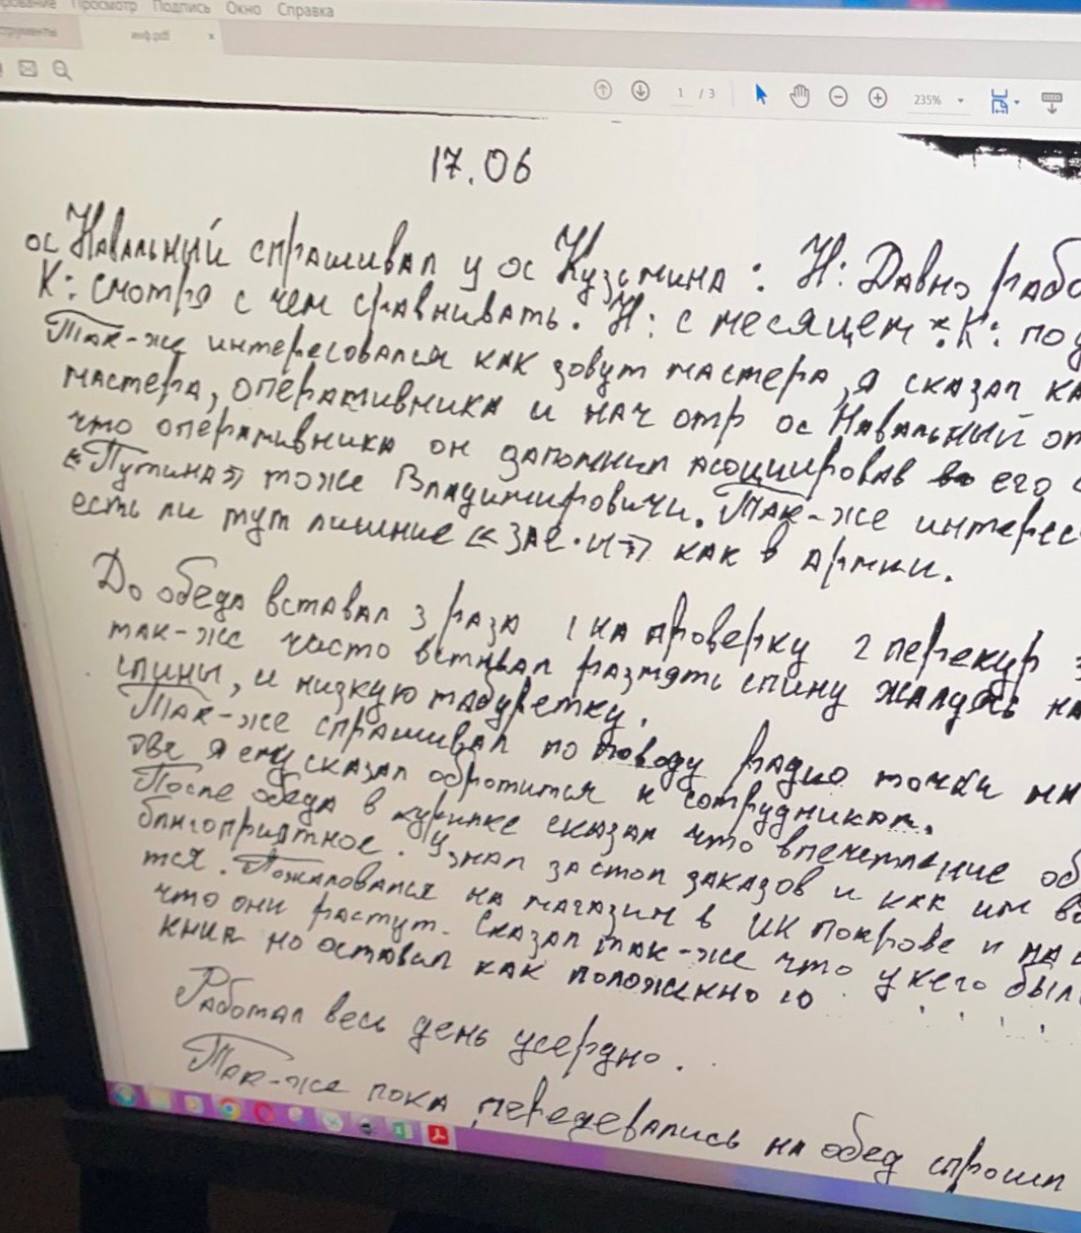 Просмотр Подпись Окно Справка
инф.pdf x
1 / 3 235%
17.06
ос Навальный спрашивал у ос Кузьмина: Н: Давно рабо
К: смотря с чем сравнивать. Н: с месяцем К: по
Так-же интересовался как зовут мастера, я сказал ка
мастера, оперативника и нач отр ос Навальный от
что оперативника он запомнил асоциировав его
«Путина» тоже Владимировичи. Так-же интерес
есть ли тут лишние как в армии.
До обеда вставал 3 раза 1 на проверку 2 перекур
так-же часто вставал размять спину жалуясь на
спины, и низкую табуретку.
Так-же спрашивал по поводу радио точки на
я ему сказал обротится к сотрудникам.
После обеда в курилке сказал что впечетление об
благоприятное. Узнал за стол заказов и как им
тся. Пожаловался на магазин в ИК Покрове и на
что они растут. Сказал так-же что у него был
книг но оставил как положенно 10
Работал весь день усердно.
Так-же пока переодевались на обед спросил